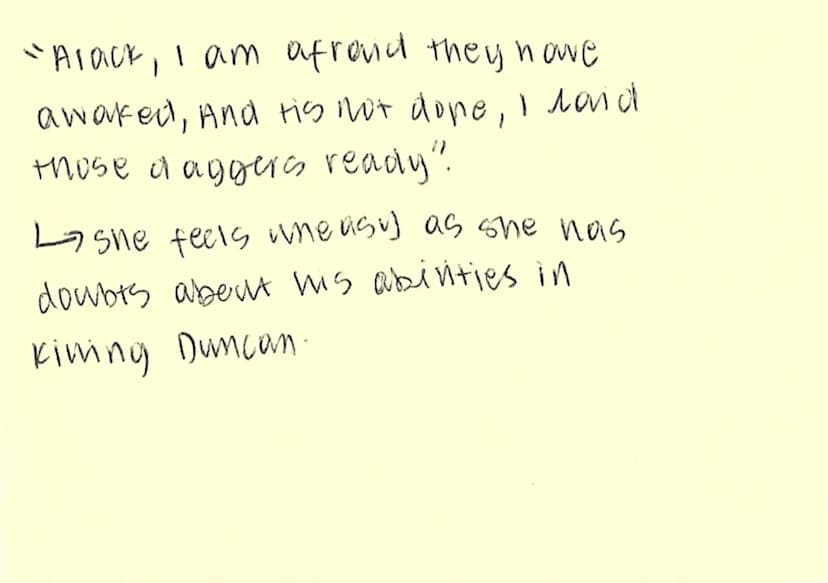 "Alack, I am afraid they have
awaked, And tis not done, I laid
those daggers ready".
↳ she feels uneasy as she has
doubts about his abilities in
killing Duncan.